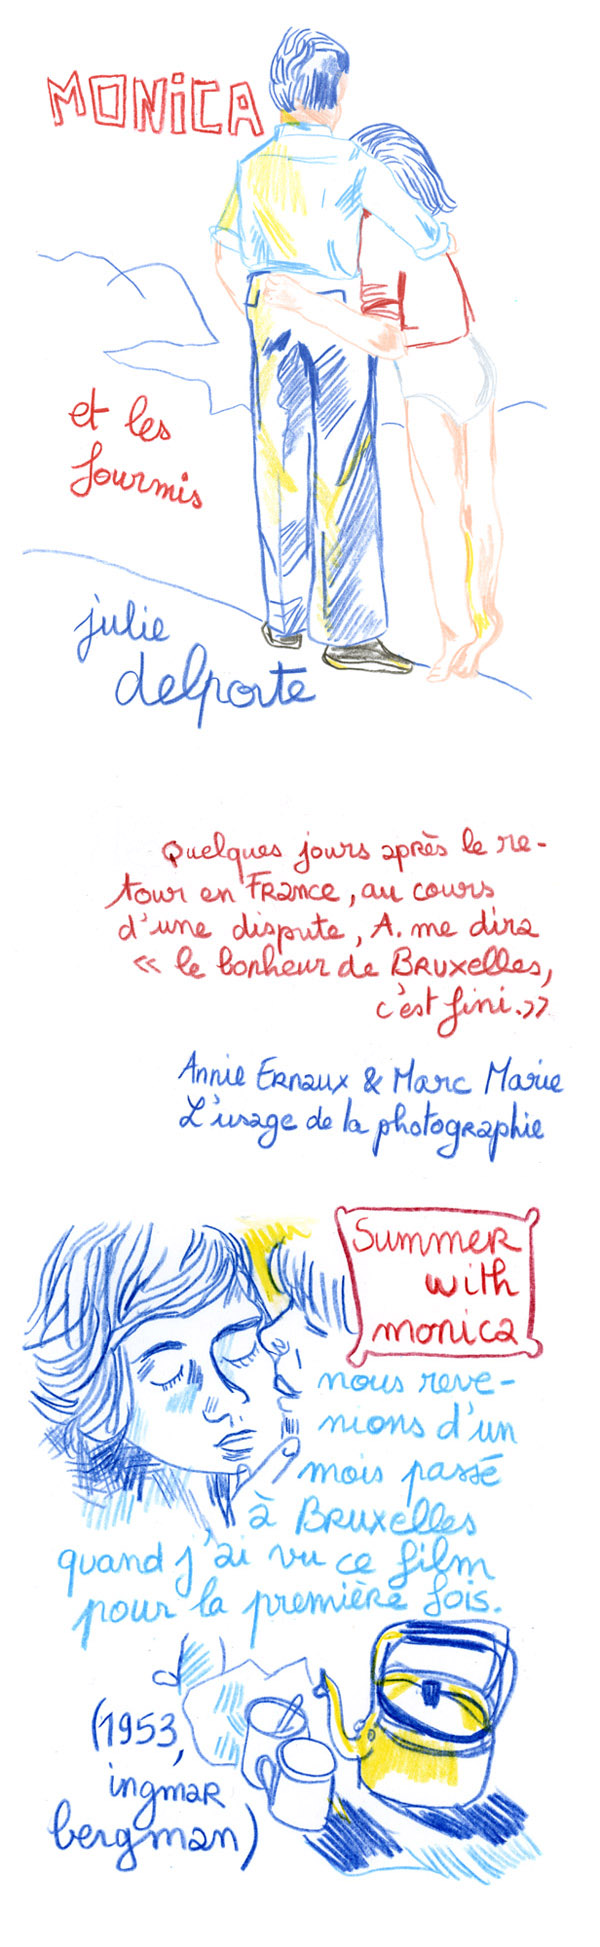 MONiCA
et les
fourmis
julie
delporte
Quelques jours après le re-
tour en France, au cours
d'une dispute, A. me dira
« le bonheur de Bruxelles,
c'est fini.»
Annie Ernaux & Marc Marie
L'usage de la photographie
Summer
with
monica
nous reve-
nions d'un
mois passé
à Bruxelles
quand j'ai vu ce film
pour la première fois.
(1953,
ingmar
bergman)